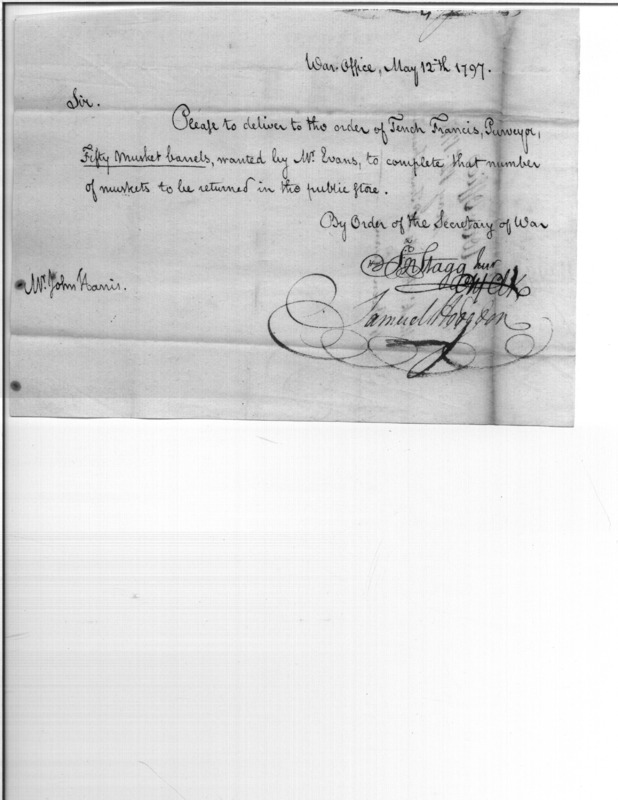 War Office, May 12th 1797.
Sir.
Please to deliver to the order of Tench Francis, Purveyor,
Fifty Musket barrels, wanted by Mr. Evans, to complete that number
of muskets to be returned in the public store.
By Order of the Secretary of War
Jno Stagg Junr
Chf Clk
Mr. John Harris.
Samuel Hodgdon